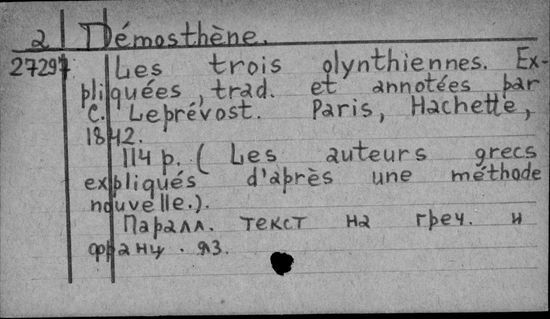 2 Démosthène.
27297 Les trois olynthiennes. Ex-
pliquées, trad. et annotées par
C. Leprévost. Paris, Hachette,
1842.
114 p. (Les auteurs grecs
expliqués d'après une méthode
nouvelle.).
Паралл. текст на греч. и
франц. яз.